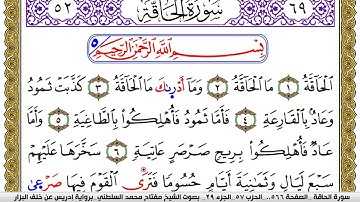 ٥٢ سُورَةُ الْحَاقَّةِ ٦٩
بِسْمِ اللَّهِ الرَّحْمَٰنِ الرَّحِيمِ ٥
الْحَاقَّةُ ١ مَا الْحَاقَّةُ ٢ وَمَا أَدْرِىٰكَ مَا الْحَاقَّةُ ٣ كَذَّبَتْ ثَمُودُ
وَعَادٌ بِالْقَارِعَةِ ٤ فَأَمَّا ثَمُودُ فَأُهْلِكُوا بِالطَّاغِيَةِ ٥ وَأَمَّا
عَادٌ فَأُهْلِكُوا بِرِيحٍ صَرْصَرٍ عَاتِيَةٍ ٦ سَخَّرَهَا عَلَيْهِمْ
سَبْعَ لَيَالٍ وَثَمَٰنِيَةَ أَيَّامٍ حُسُومًا فَتَرَى الْقَوْمَ فِيهَا صَرْعَىٰ
سورة الحاقة الصفحة ٥٦٦ ... الحزب ٥٧ الجزء ٢٩ بصوت الشيخ مفتاح محمد السلطني .برواية إدريس عن خلف البزار